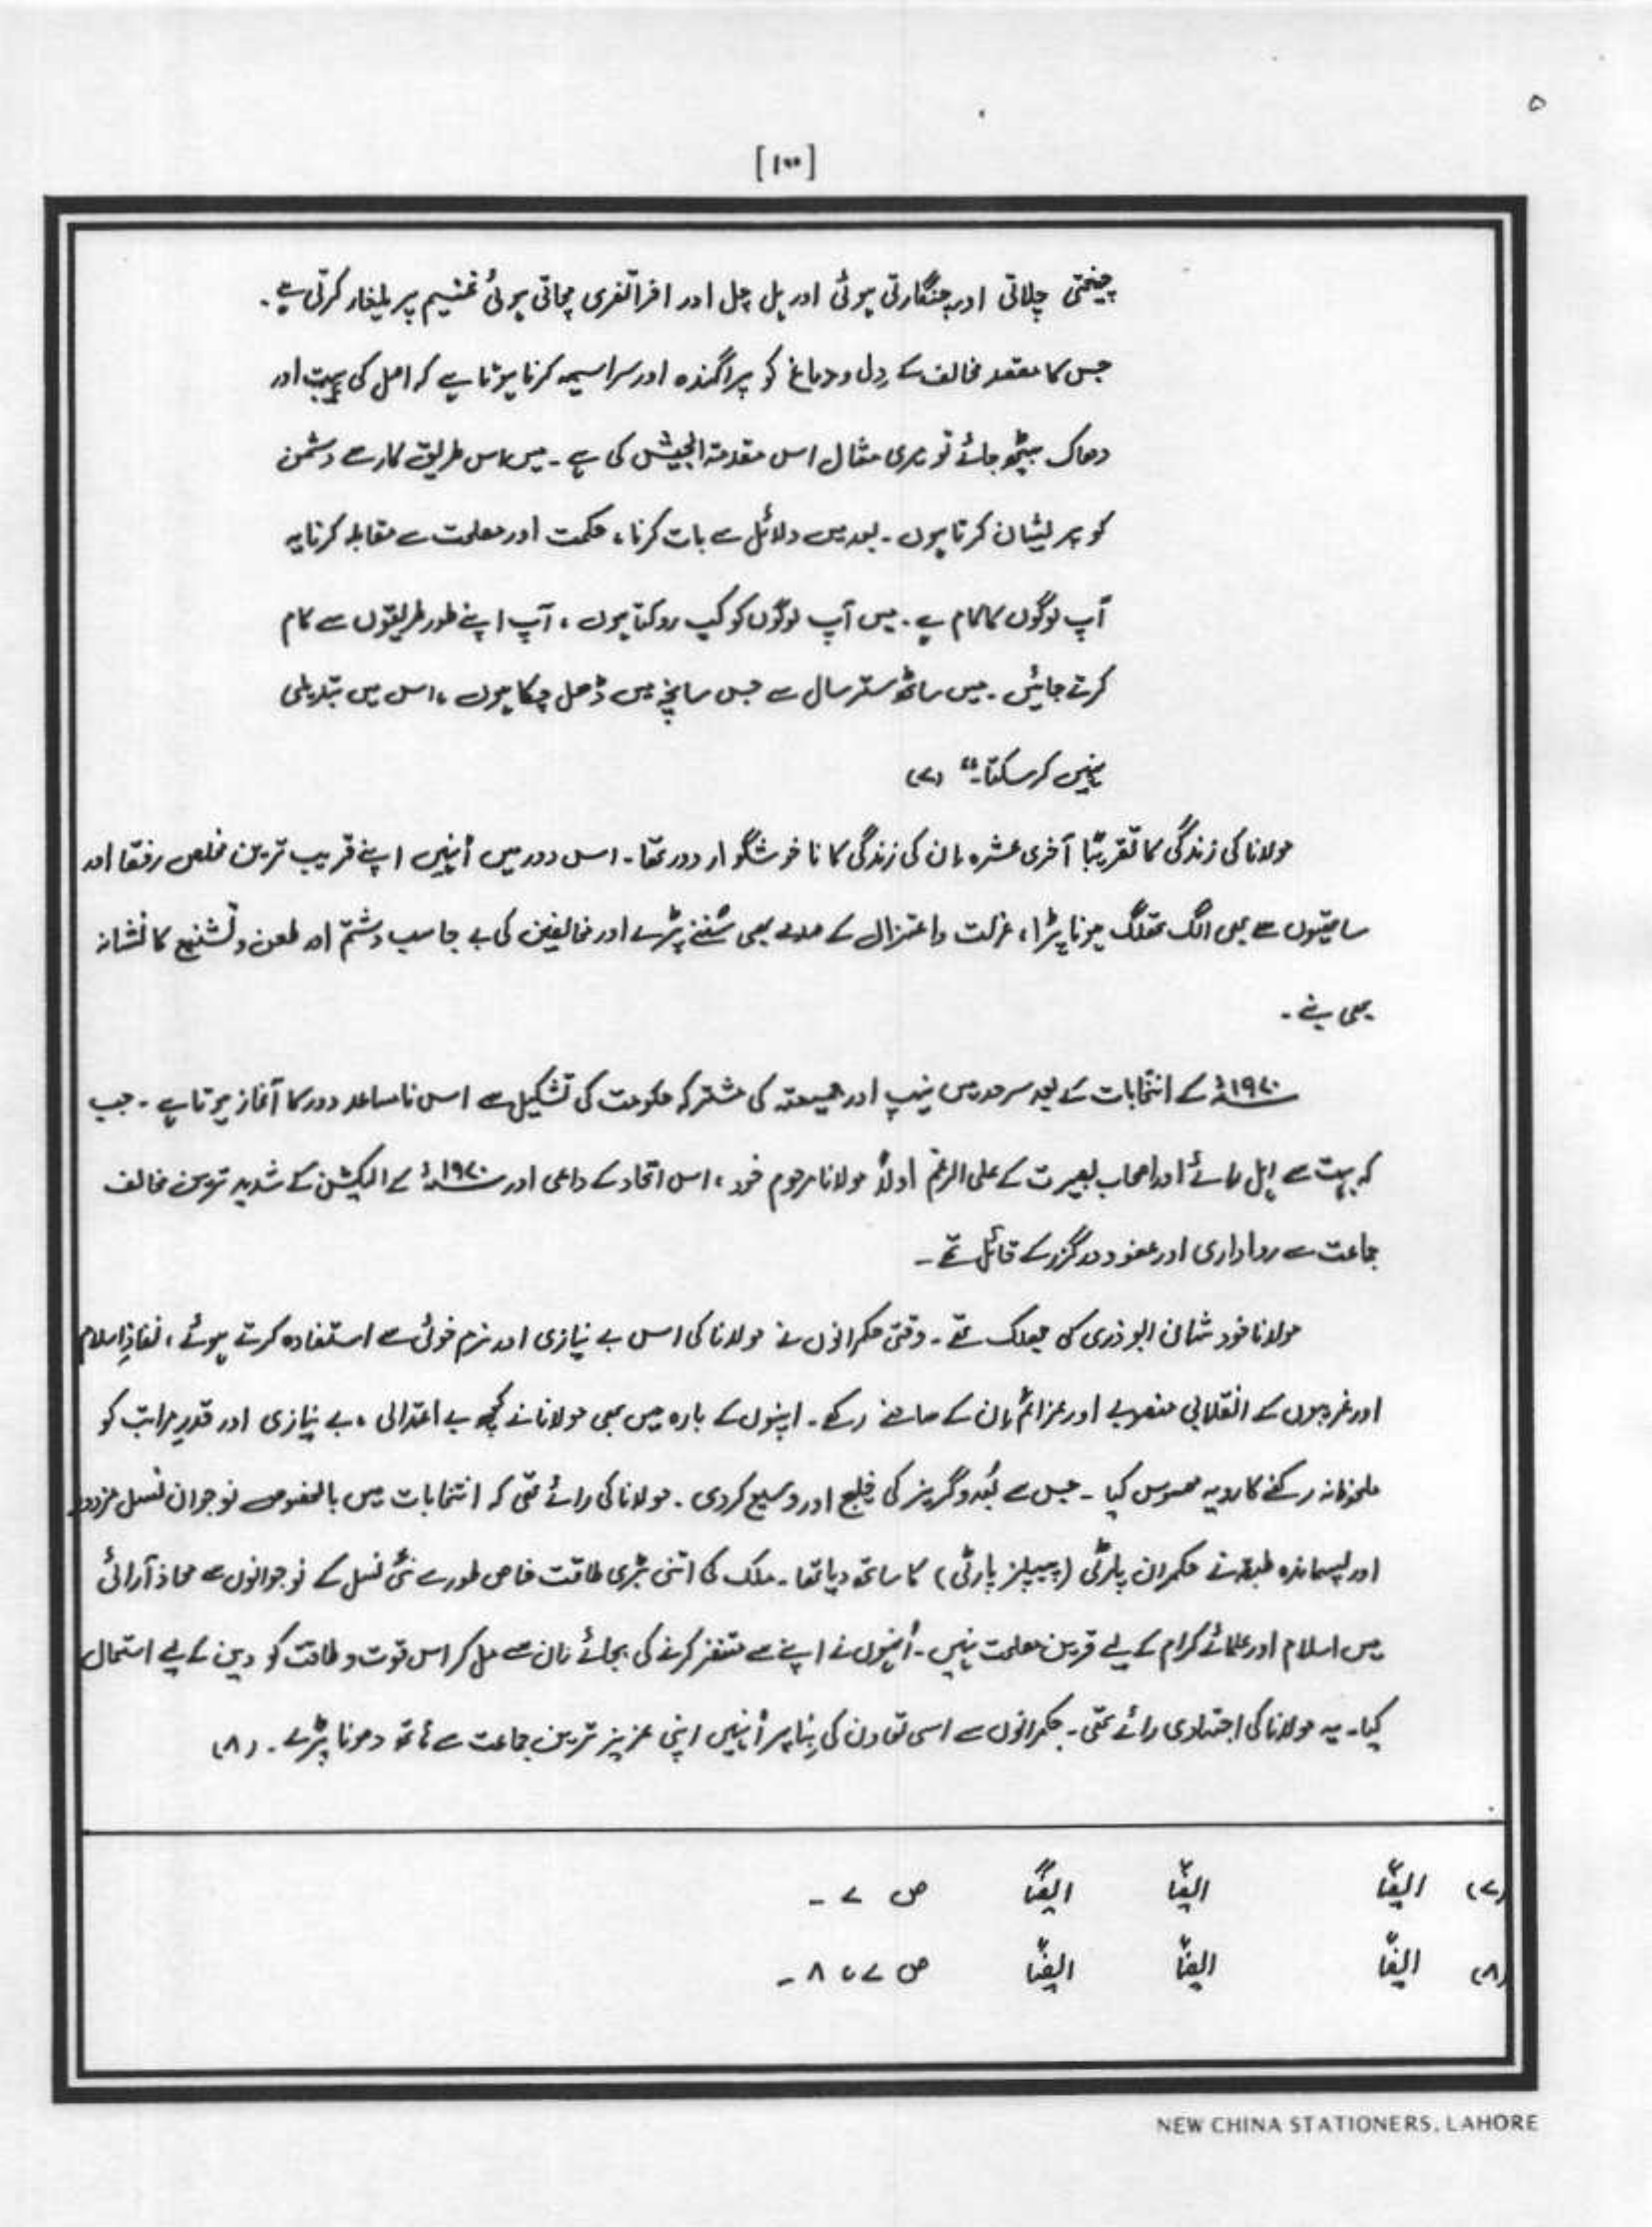 ۵
[۱۰۰]
چیختی چلاتی اور چنگارتی ہوئی اور ہل چل اور افراتفری مچاتی ہوئی غنیم پر یلغار کرتی ہے۔
جس کا مقصد مخالف کے دِل و دماغ کو پراگندہ اور سراسیمہ کرنا ہوتا ہے کہ اصل کی ہیبت اور
دھاک بیٹھ جائے تو میری مثال اس مقدمۃ الجیش کی ہے۔ میں اس طریقِ کار سے دشمن
کو پریشان کرتا ہوں۔ بعد میں دلائل سے بات کرنا، حکمت اور مصلحت سے مقابلہ کرنا یہ
آپ لوگوں کا کام ہے۔ میں آپ لوگوں کو کب روکتا ہوں، آپ اپنے طور طریقوں سے کام
کرتے جائیں۔ میں ساٹھ ستر سال سے جس سانچے میں ڈھل چکا ہوں، اس میں تبدیلی
نہیں کرسکتا۔“ (۷)
مولانا کی زندگی کا تقریبًا آخری عشرہ ان کی زندگی کا ناخوشگوار دور تھا۔ اس دور میں اُنہیں اپنے قریب ترین مخلص رفقا اور
ساتھیوں سے بھی الگ تھلگ ہونا پڑا، عزلت و اعتزال کے صدمے بھی سُننے پڑے اور مخالفین کی بے جا سب و شتم اور طعن و تشنیع کا نشانہ
بھی بنے۔
۱۹۷۰ء کے انتخابات کے بعد سرحد میں نیپ اور جمیعۃ کی مشترکہ حکومت کی تشکیل سے اس نامساعد دور کا آغاز ہوتا ہے۔ جب
کہ بہت سے اہل رائے اور اصحاب بصیرت کے علی الرغم اولاً مولانا مرحوم خود، اس اتحاد کے داعی اور ۱۹۷۰ء کے الیکشن کے شدید ترین مخالف
جماعت سے رواداری اور عفو و درگزر کے قائل تھے۔
مولانا خود شانِ ابوذری کی جھلک تھے۔ وقتی حکمرانوں نے مولانا کی اس بے نیازی اور نرم خوئی سے استفادہ کرتے ہوئے، نفاذِ اسلام
اور غریبوں کے انقلابی منصوبے اور عزائم ان کے سامنے رکھے۔ اپنوں کے بارہ میں بھی مولانا نے کچھ بے اعتدالی، بے نیازی اور قدرِ مراتب کو
ملحوظ نہ رکھنے کا رویہ محسوس کیا۔ جس سے بُعد و گریز کی خلیج اور وسیع کر دی۔ مولانا کی رائے تھی کہ انتخابات میں بالخصوص نوجوان نسل مزدور
اور پسماندہ طبقہ نے حکمران پارٹی (پیپلز پارٹی) کا ساتھ دیا تھا۔ ملک کی اتنی بڑی طاقت خاص طور سے نئی نسل کے نوجوانوں سے محاذ آرائی
میں اسلام اور علمائے کرام کے لیے قرین مصلحت نہیں۔ اُنہوں نے اپنے سے متنفر کرنے کی بجائے ان سے مل کر اس قوت و طاقت کو دین کے لیے استعمال
کیا۔ یہ مولانا کی اجتہادی رائے تھی۔ حکمرانوں سے اسی تعاون کی بِنا پر اُنہیں اپنی عزیز ترین جماعت سے ہاتھ دھونا پڑے۔ (۸)
(۷) ایضًا ایضًا ایضًا ص ۷ ۔
(۸) ایضًا ایضًا ایضًا ص ۷، ۸ ۔
NEW CHINA STATIONERS, LAHORE